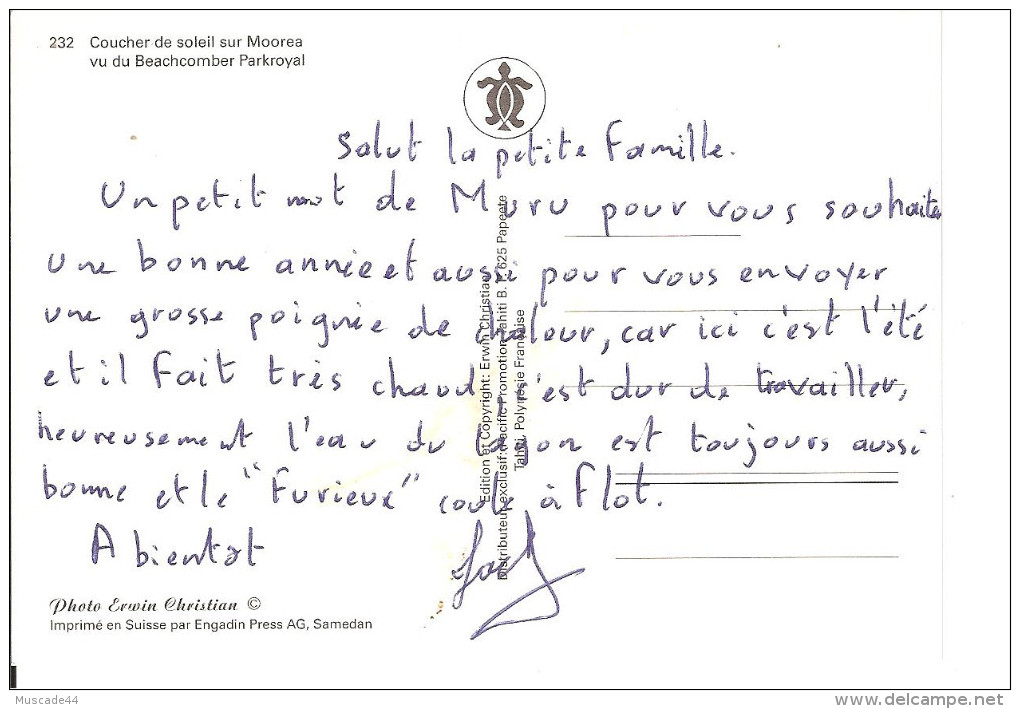 232 Coucher de soleil sur Moorea
vu du Beachcomber Parkroyal
Salut la petite famille.
Un petit mot de Muru pour vous souhaiter
une bonne année et aussi pour vous envoyer
une grosse poignée de chaleur, car ici c'est l'été
et il fait très chaud, c'est dur de travailler,
heureusement l'eau du lagon est toujours aussi
bonne et le "Furieux" coule à flot.
A bientôt
Edition et Copyright: Erwin Christian
Distributeur exclusif: Pacific Promotion Tahiti B. P. 625 Papeete
Tahiti, Polynésie Française
Photo Erwin Christian ©
Imprimé en Suisse par Engadin Press AG, Samedan
Muscade44
www.delcampe.net